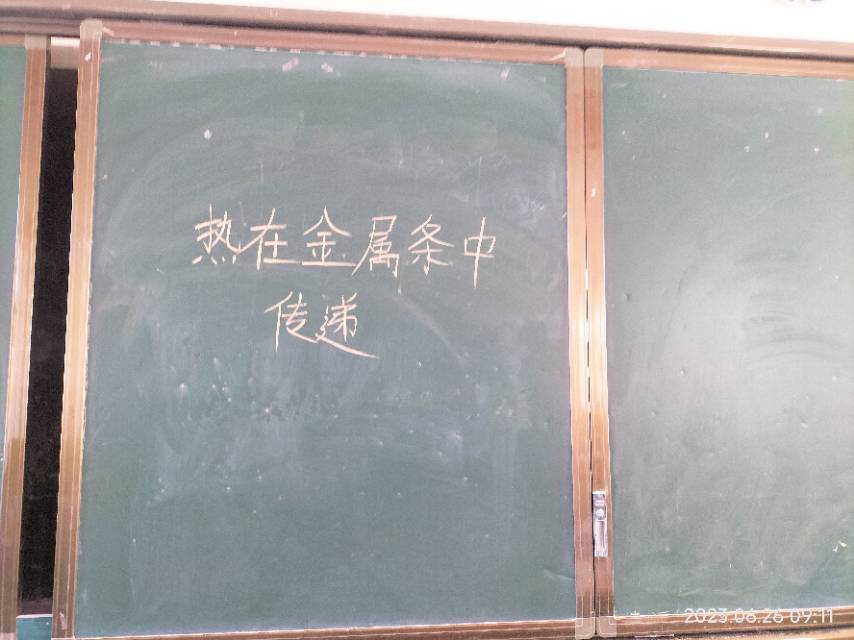 热在金属条中
传递
2023.06.26 09:11